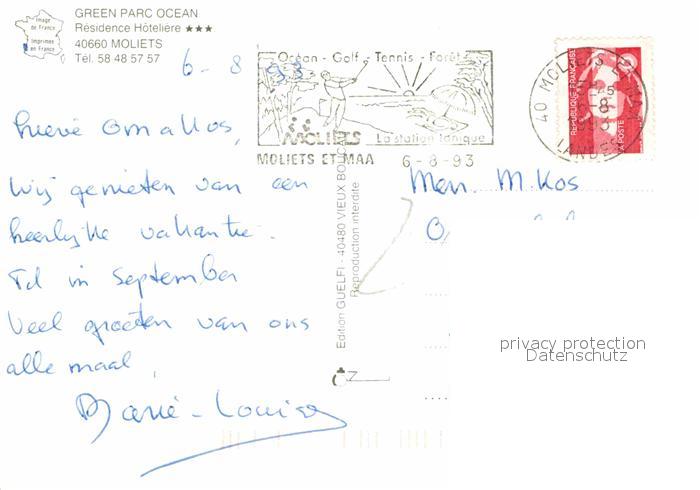 Image
de France
Imprimée
en France
GREEN PARC OCEAN
Résidence Hôtelière ★★★
40660 MOLIETS
Tél. 58 48 57 57
6 - 8 93
Océan - Golf - Tennis - Forêt
MOLIETS La station tonique
MOLIETS ET MAA 6-8-93
40 MOLIETS
LANDES
REPUBLIQUE FRANÇAISE
LA POSTE
Lieve Oma Kos,
Wij genieten van een
heerlijke vakantie.
Tot in September
Veel groeten van ons
allemaal,
Marie-Louise
Edition GUELFI - 40480 VIEUX BOUCAU
Reproduction interdite
Mevr. M. Kos
privacy protection
Datenschutz